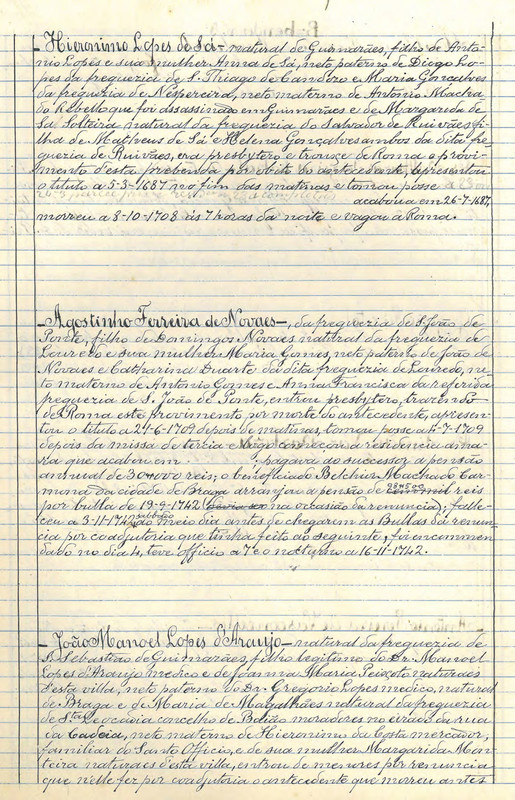 Hieronimo Lopes de Sá - natural de Guimarães, filho de Anto-
nio Lopes e sua mulher Anna de Sá, neto paterno de Diogo Lo-
pes da freguezia de S. Thiago de Candozo e Maria Gonçalves
da freguezia de Nespereira, neto materno de Antonio Macha-
do Rebello que foi assassinado em Guimarães e de Margarida de
Sá, Solteira natural da freguezia do Salvador de Ruivães, fi-
lha de Matheus de Sá e Helena Gonçalves ambos da dita fre-
guezia de Ruivães, era presbytero e trouxe de Roma o provi-
mento d'esta prebenda por obito do antecedente, apresentou
o titulo a 5-3-1687 no fim das matinas e tomou posse a
acabou a em 26-7-1687,
morreu a 8-10-1708 ás 7 horas da noite e vagou a Roma.
- Agostinho Ferreira de Novaes -, da freguezia de S. João de
Ponte, filho de Domingos Novaes natural da freguezia de
Louredo e sua mulher Maria Gomes, neto paterno de João de
Novaes e Catharina Duarte da dita freguezia de Louredo, ne-
to materno de Antonio Gomes e Anna Francisca da referida
freguezia de S. João de Ponte, entrou presbytero, trazendo
de Roma este provimento por morte do antecedente, apresen-
tou o titulo a 21-6-1709 depois de matinas, tomou posse a 4-7-1709
depois da missa de tercia e logo começou a residencia
que acabou em pagava ao successor a pensão
annual de 30*000 reis; o beneficiado Belchior Machado Car-
mona da cidade de Braga arranjou a pensão de reis
por bulla de 19-9-1742 na occasião da renuncia); falle-
ceu a 3-11-1742 sabbado ao meio dia antes de chegarem as Bullas da renun-
cia por coadjutoria que tinha feito ao seguinte, foi encommen-
dado no dia 4, teve officio a 7 e o nocturno a 16-11-1742.
- João Manoel Lopes d'Araujo - natural da freguezia de
S. Sebastião de Guimarães, filho legitimo do Dr. Manoel
Lopes d'Araujo medico e de Joanna Maria Peixoto naturaes
d'esta villa, neto paterno do Dr. Gregorio Lopes medico, natural
de Braga e de Maria de Magalhães natural da freguezia
de Sta. Leocadia concelho de Baião moradores no eirado da rua
da Cadeia, neto materno de Hieronimo da Costa mercador,
familiar do Santo Officio, e de sua mulher Margarida Mon-
teira naturaes d'esta villa, entrou de menores por renuncia
que n'elle fez por coadjutoria o antecedente que morreu antes